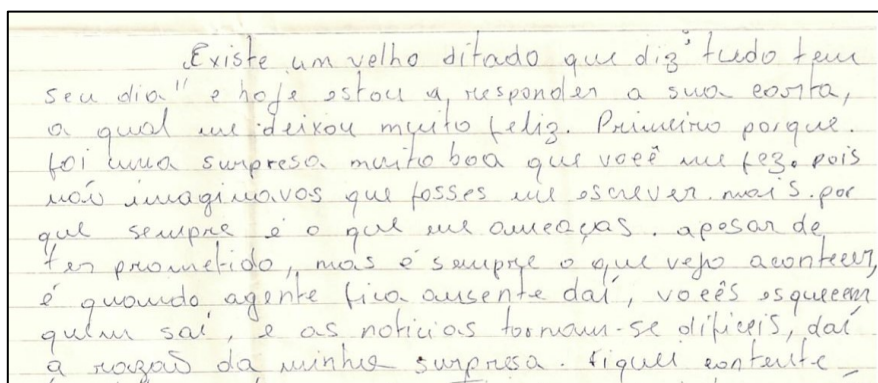 Existe um velho ditado que diz "tudo tem
seu dia" e hoje estou a responder a sua carta,
a qual me deixou muito feliz. Primeiro porque.
foi uma surpresa muito boa que você me fez. pois
não imaginavos que fosses me escrever. mais. por
que sempre é o que me ameaças. apesar de
ter prometido, mas é sempre o que vejo acontecer,
é quando agente fica ausente daí, vocês esquecem
quem sai, e as noticias tornam-se difíceis, daí
a razão da minha surpresa. fiquei contente